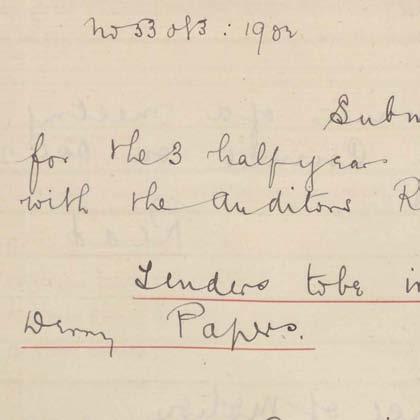 No 53 of 3 : 1902
Subm
for the 3 half years
with the auditors R
Tenders to be in
Derry Papers.